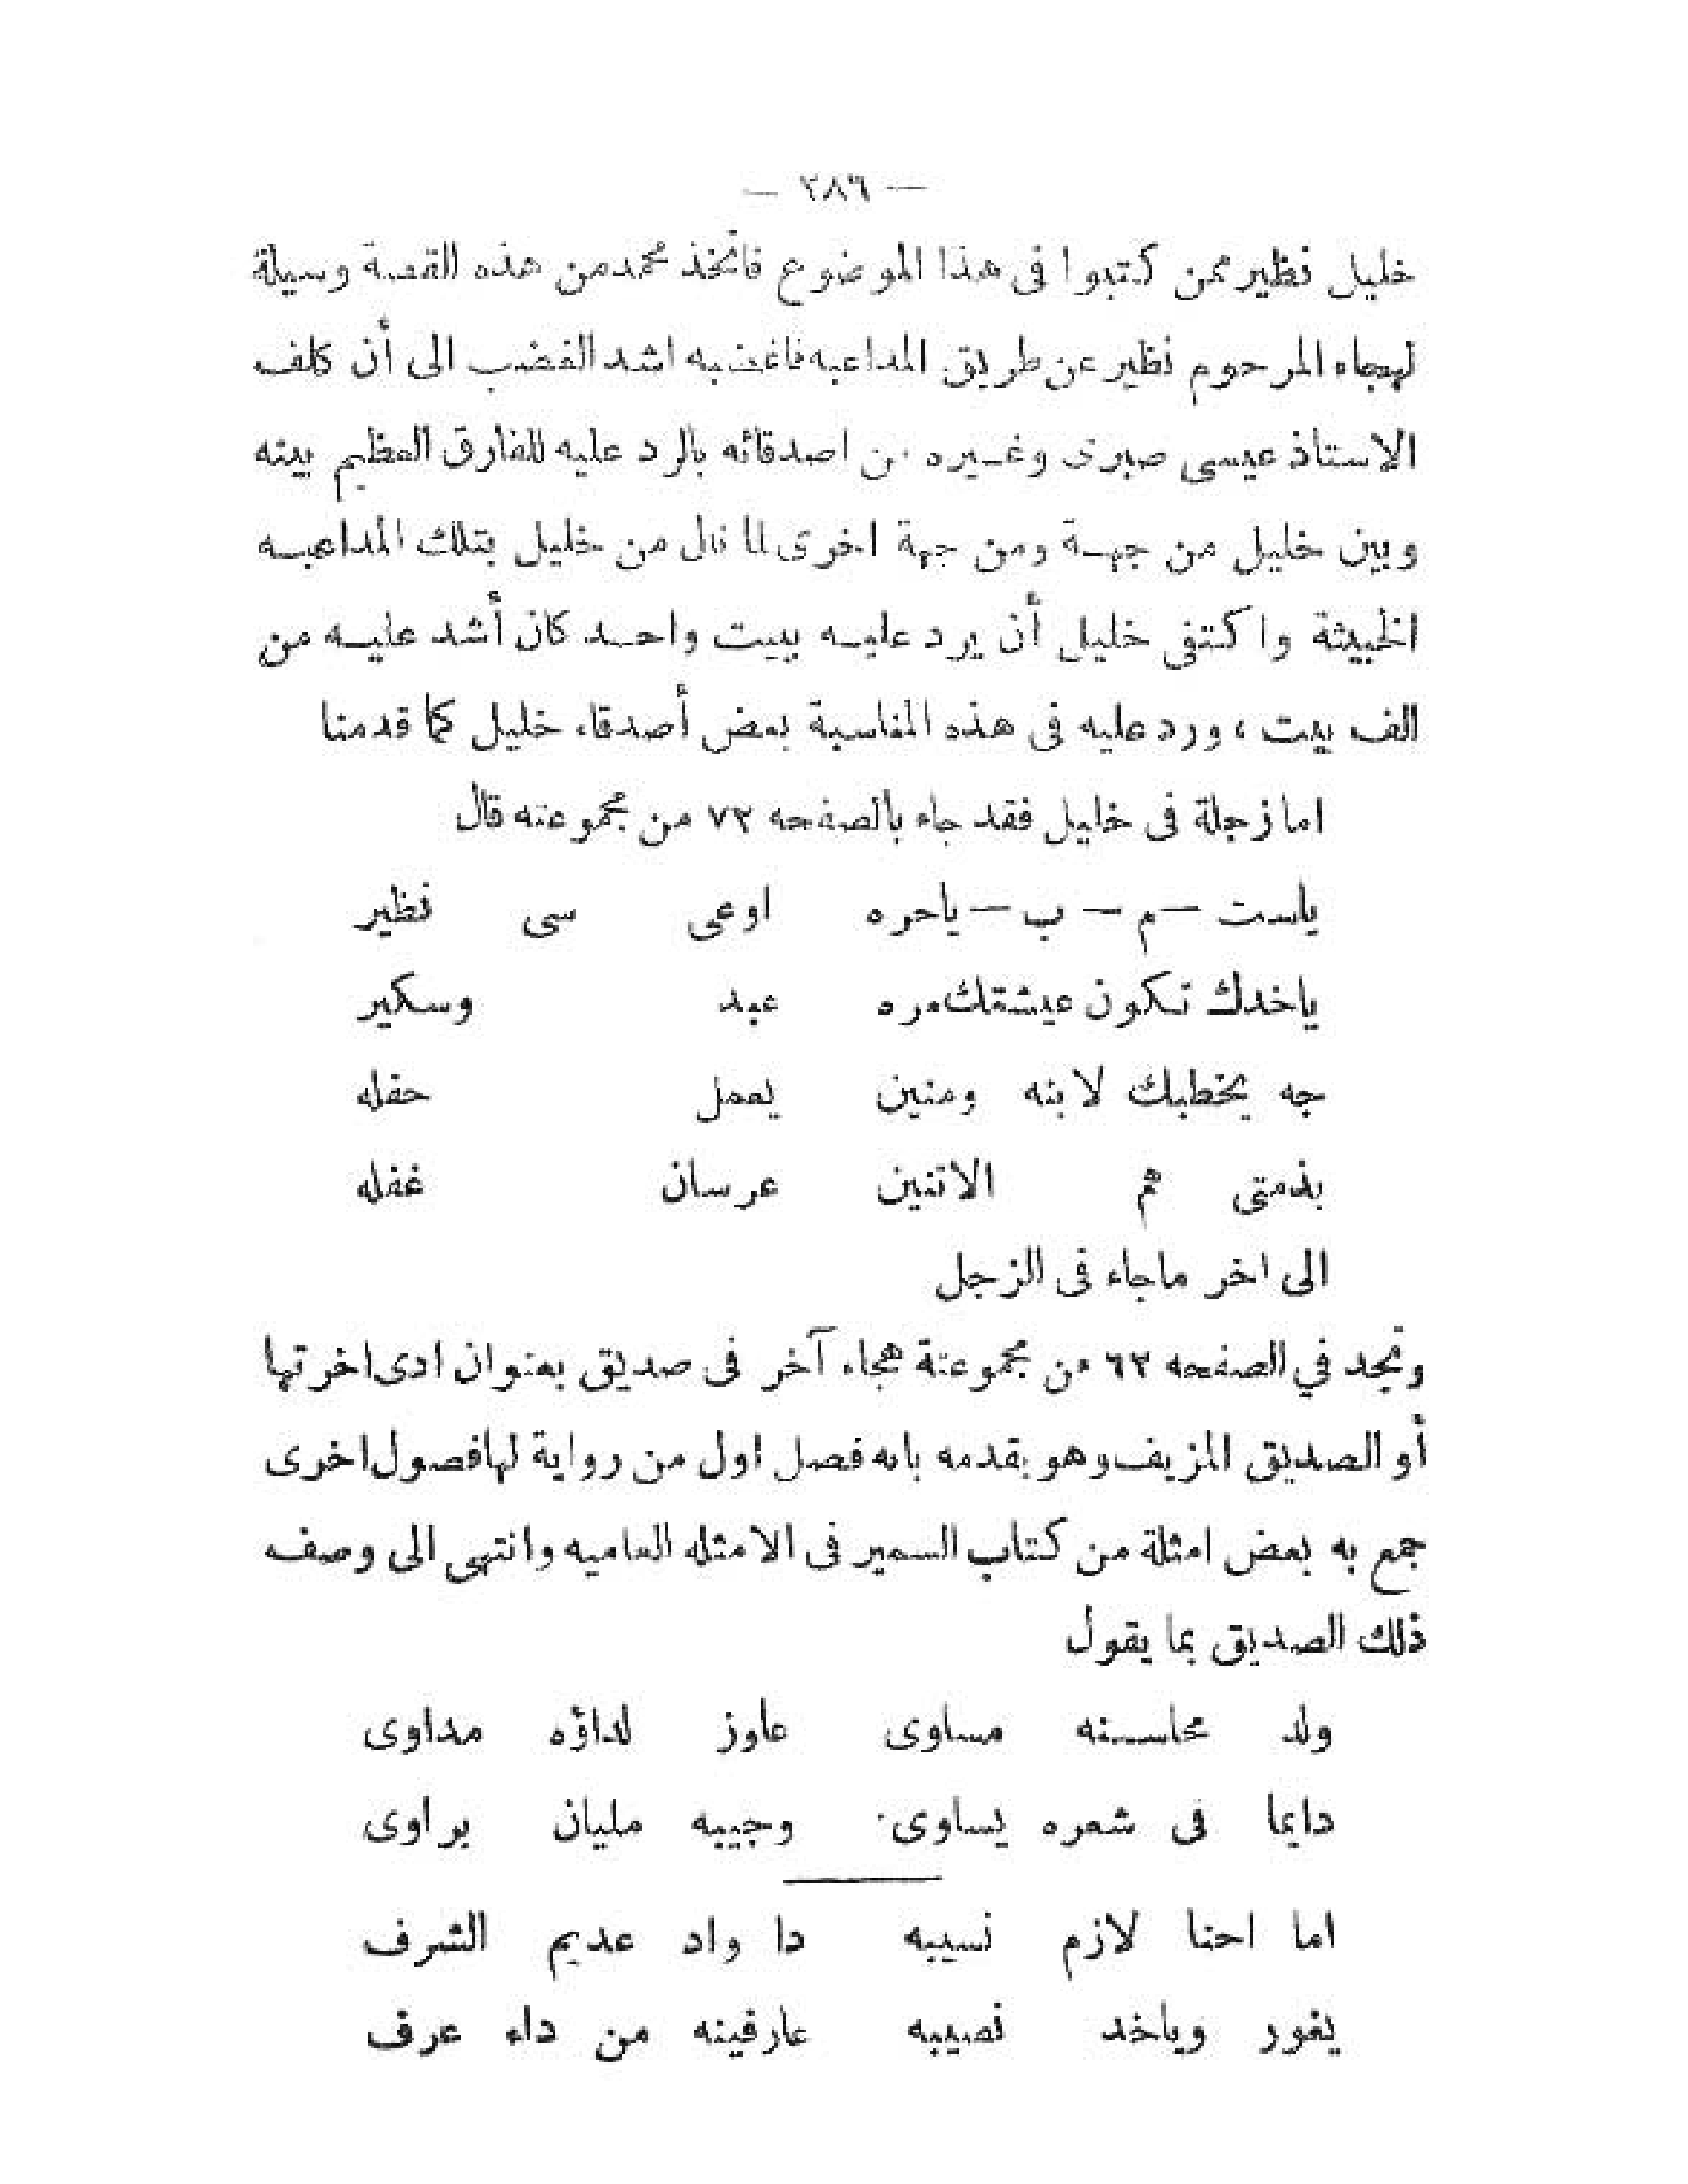 — ٢٨٦ —
خليل نظير ممن كتبوا فى هذا الموضوع فاتخذ محمد من هذه القصة وسيلة
لهجاء المرحوم نظير عن طريق المداعبه فاغضبه اشد الغضب الى أن كلف
الاستاذ عيسى صبرى وغيره من اصدقائه بالرد عليه للفارق العظيم بينه
وبين خليل من جهة ومن جهة اخرى لما نال من خليل بتلك المداعبه
الخبيثة واكتفى خليل أن يرد عليه ببيت واحد كان أشد عليه من
الف بيت ، ورد عليه فى هذه المناسبة بعض أصدقاء خليل كما قدمنا
اما زجلة فى خليل فقد جاء بالصفحه ٧٢ من مجموعته قال
ياست — م — ب — ياحره اوعى سى نظير
ياخدك تكون عيشتك مره عبد وسكير
جه يخطبك لابنه ومنين يعمل حفله
بذمتى هم الاتنين عرسان غفله
الى اخر ماجاء فى الزجل
ونجد في الصفحه ٦٢ من مجموعتة هجاء آخر فى صديق بعنوان ادى اخرتها
أو الصديق المزيف وهو يقدمه بانه فصل اول من رواية لها فصول اخرى
جمع به بعض امثلة من كتاب السمير فى الامثله العاميه وانتهى الى وصف
ذلك الصديق بما يقول
ولد محاسنه مساوى عاوز لداؤه مداوى
دايما فى شعره يساوى وجيبه مليان براوى
اما احنا لازم نسيبه دا واد عديم الشرف
يغور وياخد نصيبه عارفينه من داء عرف